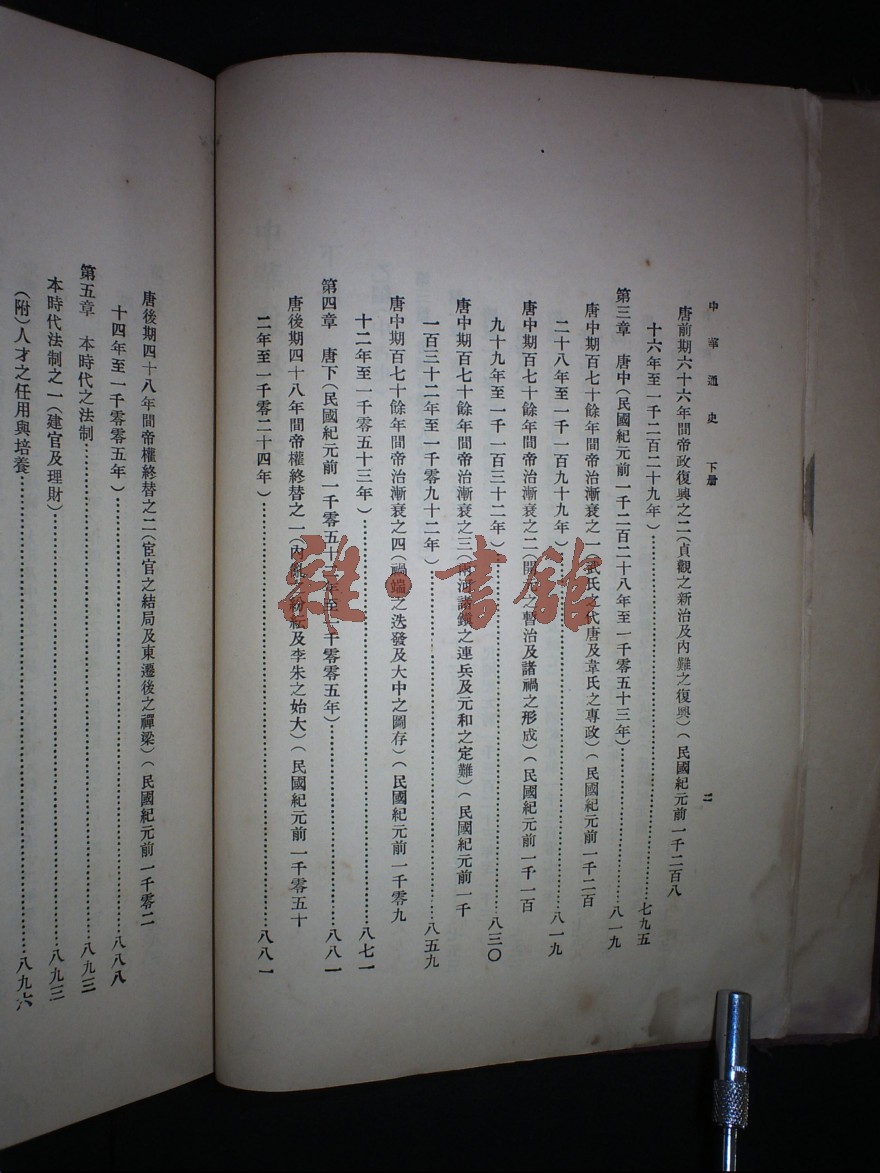 中華通史 下册 二
唐前期六十六年間帝政復興之二(貞觀之新治及內難之復興)(民國紀元前一千二百八
十六年至一千二百二十九年)……七九五
第三章 唐中(民國紀元前一千二百二十八年至一千零五十三年)……八一九
唐中期百七十餘年間帝治漸衰之一(武氏之代唐及韋氏之專政)(民國紀元前一千二百
二十八年至一千一百九十九年)……八一九
唐中期百七十餘年間帝治漸衰之二(開元之暫治及諸禍之形成)(民國紀元前一千一百
九十九年至一千一百三十二年)……八三〇
唐中期百七十餘年間帝治漸衰之三(兩河諸鎮之連兵及元和之定難)(民國紀元前一千
一百三十二年至一千零九十二年)……八五九
唐中期百七十餘年間帝治漸衰之四(禍端之迭發及大中之圖存)(民國紀元前一千零九
十二年至一千零五十三年)……八七一
第四章 唐下(民國紀元前一千零五十三年至一千零零五年)……八八一
唐後期四十八年間帝權終替之一(內亂之紛紜及李朱之始大)(民國紀元前一千零五十
二年至一千零二十四年)……八八一
唐後期四十八年間帝權終替之二(宦官之結局及東遷後之禪梁)(民國紀元前一千零二
十四年至一千零零五年)……八八八
第五章 本時代之法制……八九三
本時代法制之一(建官及理財)……八九三
(附)人才之任用與培養……八九六
雜·書館